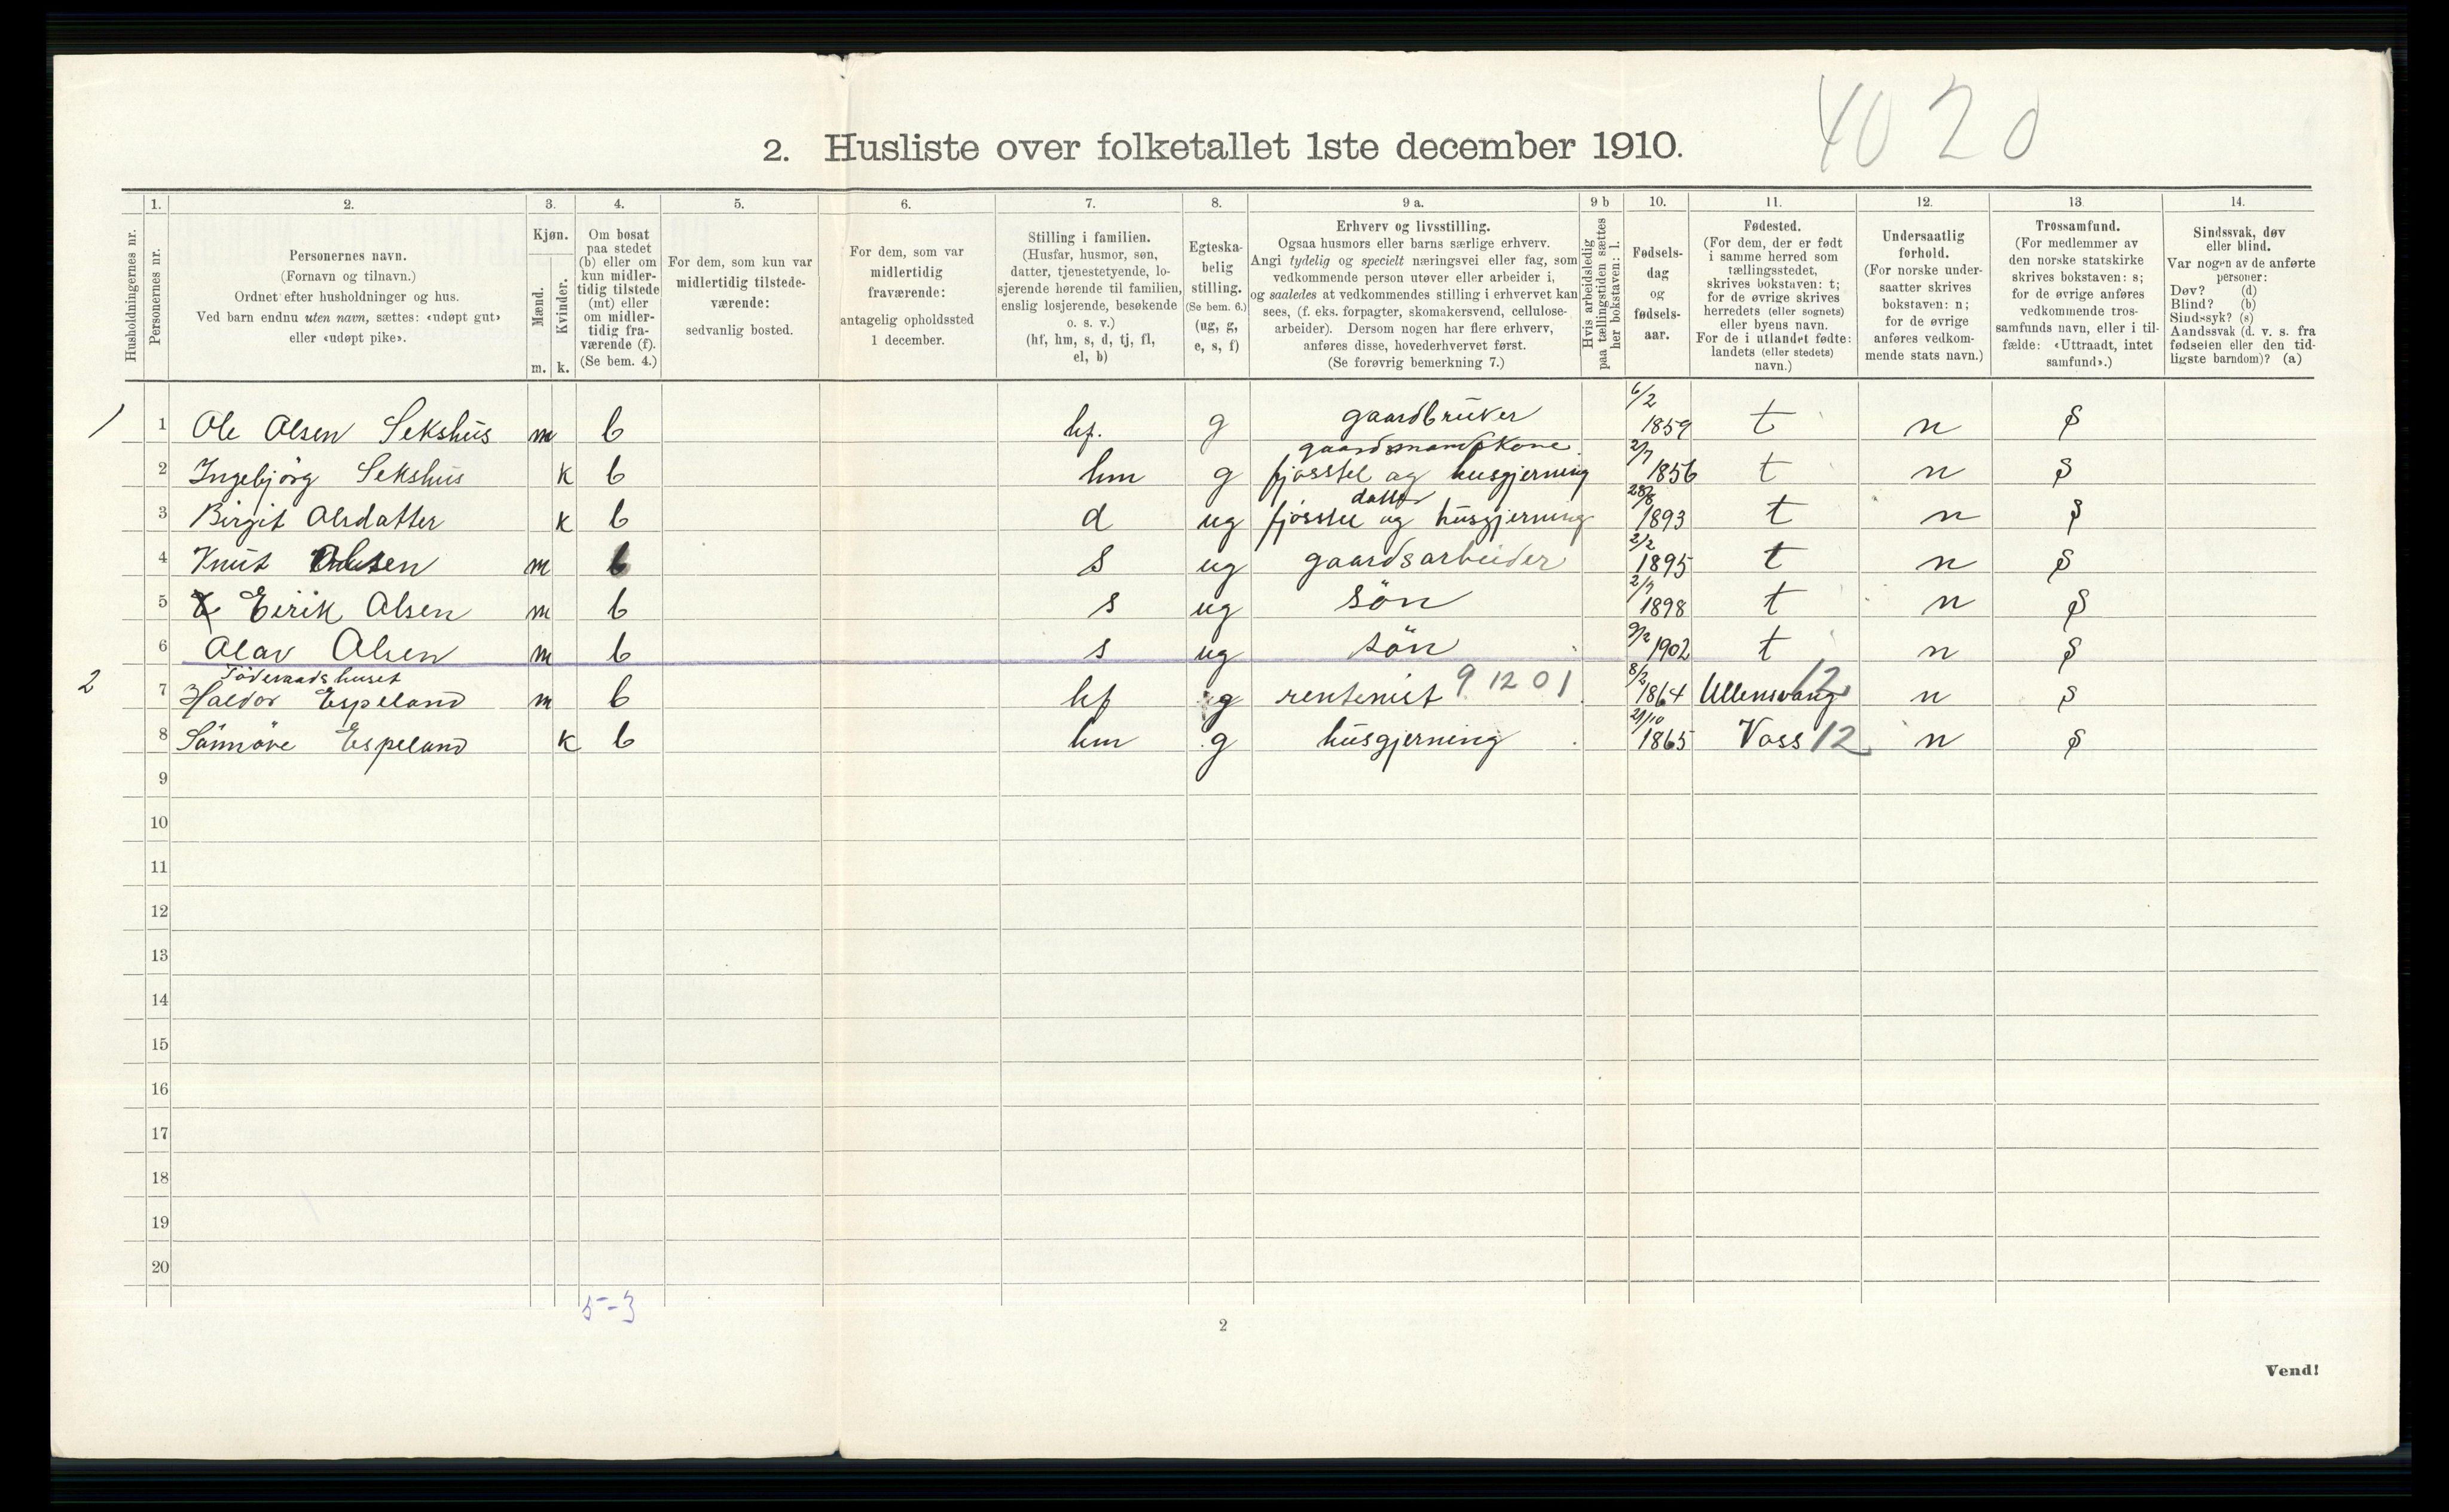 4020
2. Husliste over folketallet 1ste december 1910.
Husholdningernes nr.
1.
Personernes nr.
2.
Personernes navn.
(Fornavn og tilnavn.)
Ordnet efter husholdninger og hus.
Ved barn endnu uten navn, sættes: «udøpt gut»
eller «udøpt pike».
3.
Kjøn.
Mænd.
Kvinder.
m. k.
4.
Om bosat
paa stedet
(b) eller om
kun midler-
tidig tilstede
(mt) eller
om midler-
tidig fra-
værende (f).
(Se bem. 4.)
5.
For dem, som kun var
midlertidig tilstede-
værende:
sedvanlig bosted.
6.
For dem, som var
midlertidig
fraværende:
antagelig opholdssted
1 december.
7.
Stilling i familien.
(Husfar, husmor, søn,
datter, tjenestetyende, lo-
sjerende hørende til familien,
enslig losjerende, besøkende
o. s. v.)
(hf, hm, s, d, tj, fl,
el, b)
8.
Egteska-
belig
stilling.
(Se bem. 6.)
(ug, g,
e, s, f)
9 a.
Erhverv og livsstilling.
Ogsaa husmors eller barns særlige erhverv.
Angi tydelig og specielt næringsvei eller fag, som
vedkommende person utøver eller arbeider i,
og saaledes at vedkommendes stilling i erhvervet kan
sees, (f. eks. forpagter, skomakersvend, cellulose-
arbeider). Dersom nogen har flere erhverv,
anføres disse, hovederhvervet først.
(Se forøvrig bemerkning 7.)
9 b
Hvis arbeidsledig
paa tællingstiden sættes
her bokstaven: l.
10.
Fødsels-
dag
og
fødsels-
aar.
11.
Fødested.
(For dem, der er født
i samme herred som
tællingsstedet,
skrives bokstaven: t;
for de øvrige skrives
herredets (eller sognets)
eller byens navn.
For de i utlandet fødte:
landets (eller stedets)
navn.)
12.
Undersaatlig
forhold.
(For norske under-
saatter skrives
bokstaven: n;
for de øvrige
anføres vedkom-
mende stats navn.)
13.
Trossamfund.
(For medlemmer av
den norske statskirke
skrives bokstaven: s;
for de øvrige anføres
vedkommende tros-
samfunds navn, eller i til-
fælde: «Uttraadt, intet
samfund».)
14.
Sindssvak, døv
eller blind.
Var nogen av de anførte
personer:
Døv? (d)
Blind? (b)
Sindssyk? (s)
Aandssvak (d. v. s. fra
fødselen eller den tid-
ligste barndom)? (a)
1 1 Ole Olsen Sekshus m b hf. g gaardbruker 6/2 1859 t n s
gaardsmandskone
2 Ingebjörg Sekshus k b hm g fjosstel og husgjerning 2/7 1856 t n s
datter
3 Birgit Olsdatter k b d ug fjosstel og husgjerning 28/8 1893 t n s
4 Knut Olsen m b s ug gaardsarbeider 2/2 1895 t n s
5 Eirik Olsen m b s ug sön 2/7 1898 t n s
6 Olav Olsen m b s ug sön 9/2 1902 t n s
Föderaadshuset
2 7 Haldor Espeland m b hf g rentenist 9 12 01 8/2 1864 Ullensvang 12 n s
8 Sönnöve Espeland k b hm g husgjerning 21/10 1865 Voss 12 n s
9
10
11
12
13
14
15
16
17
18
19
20
5-3
2
Vend!